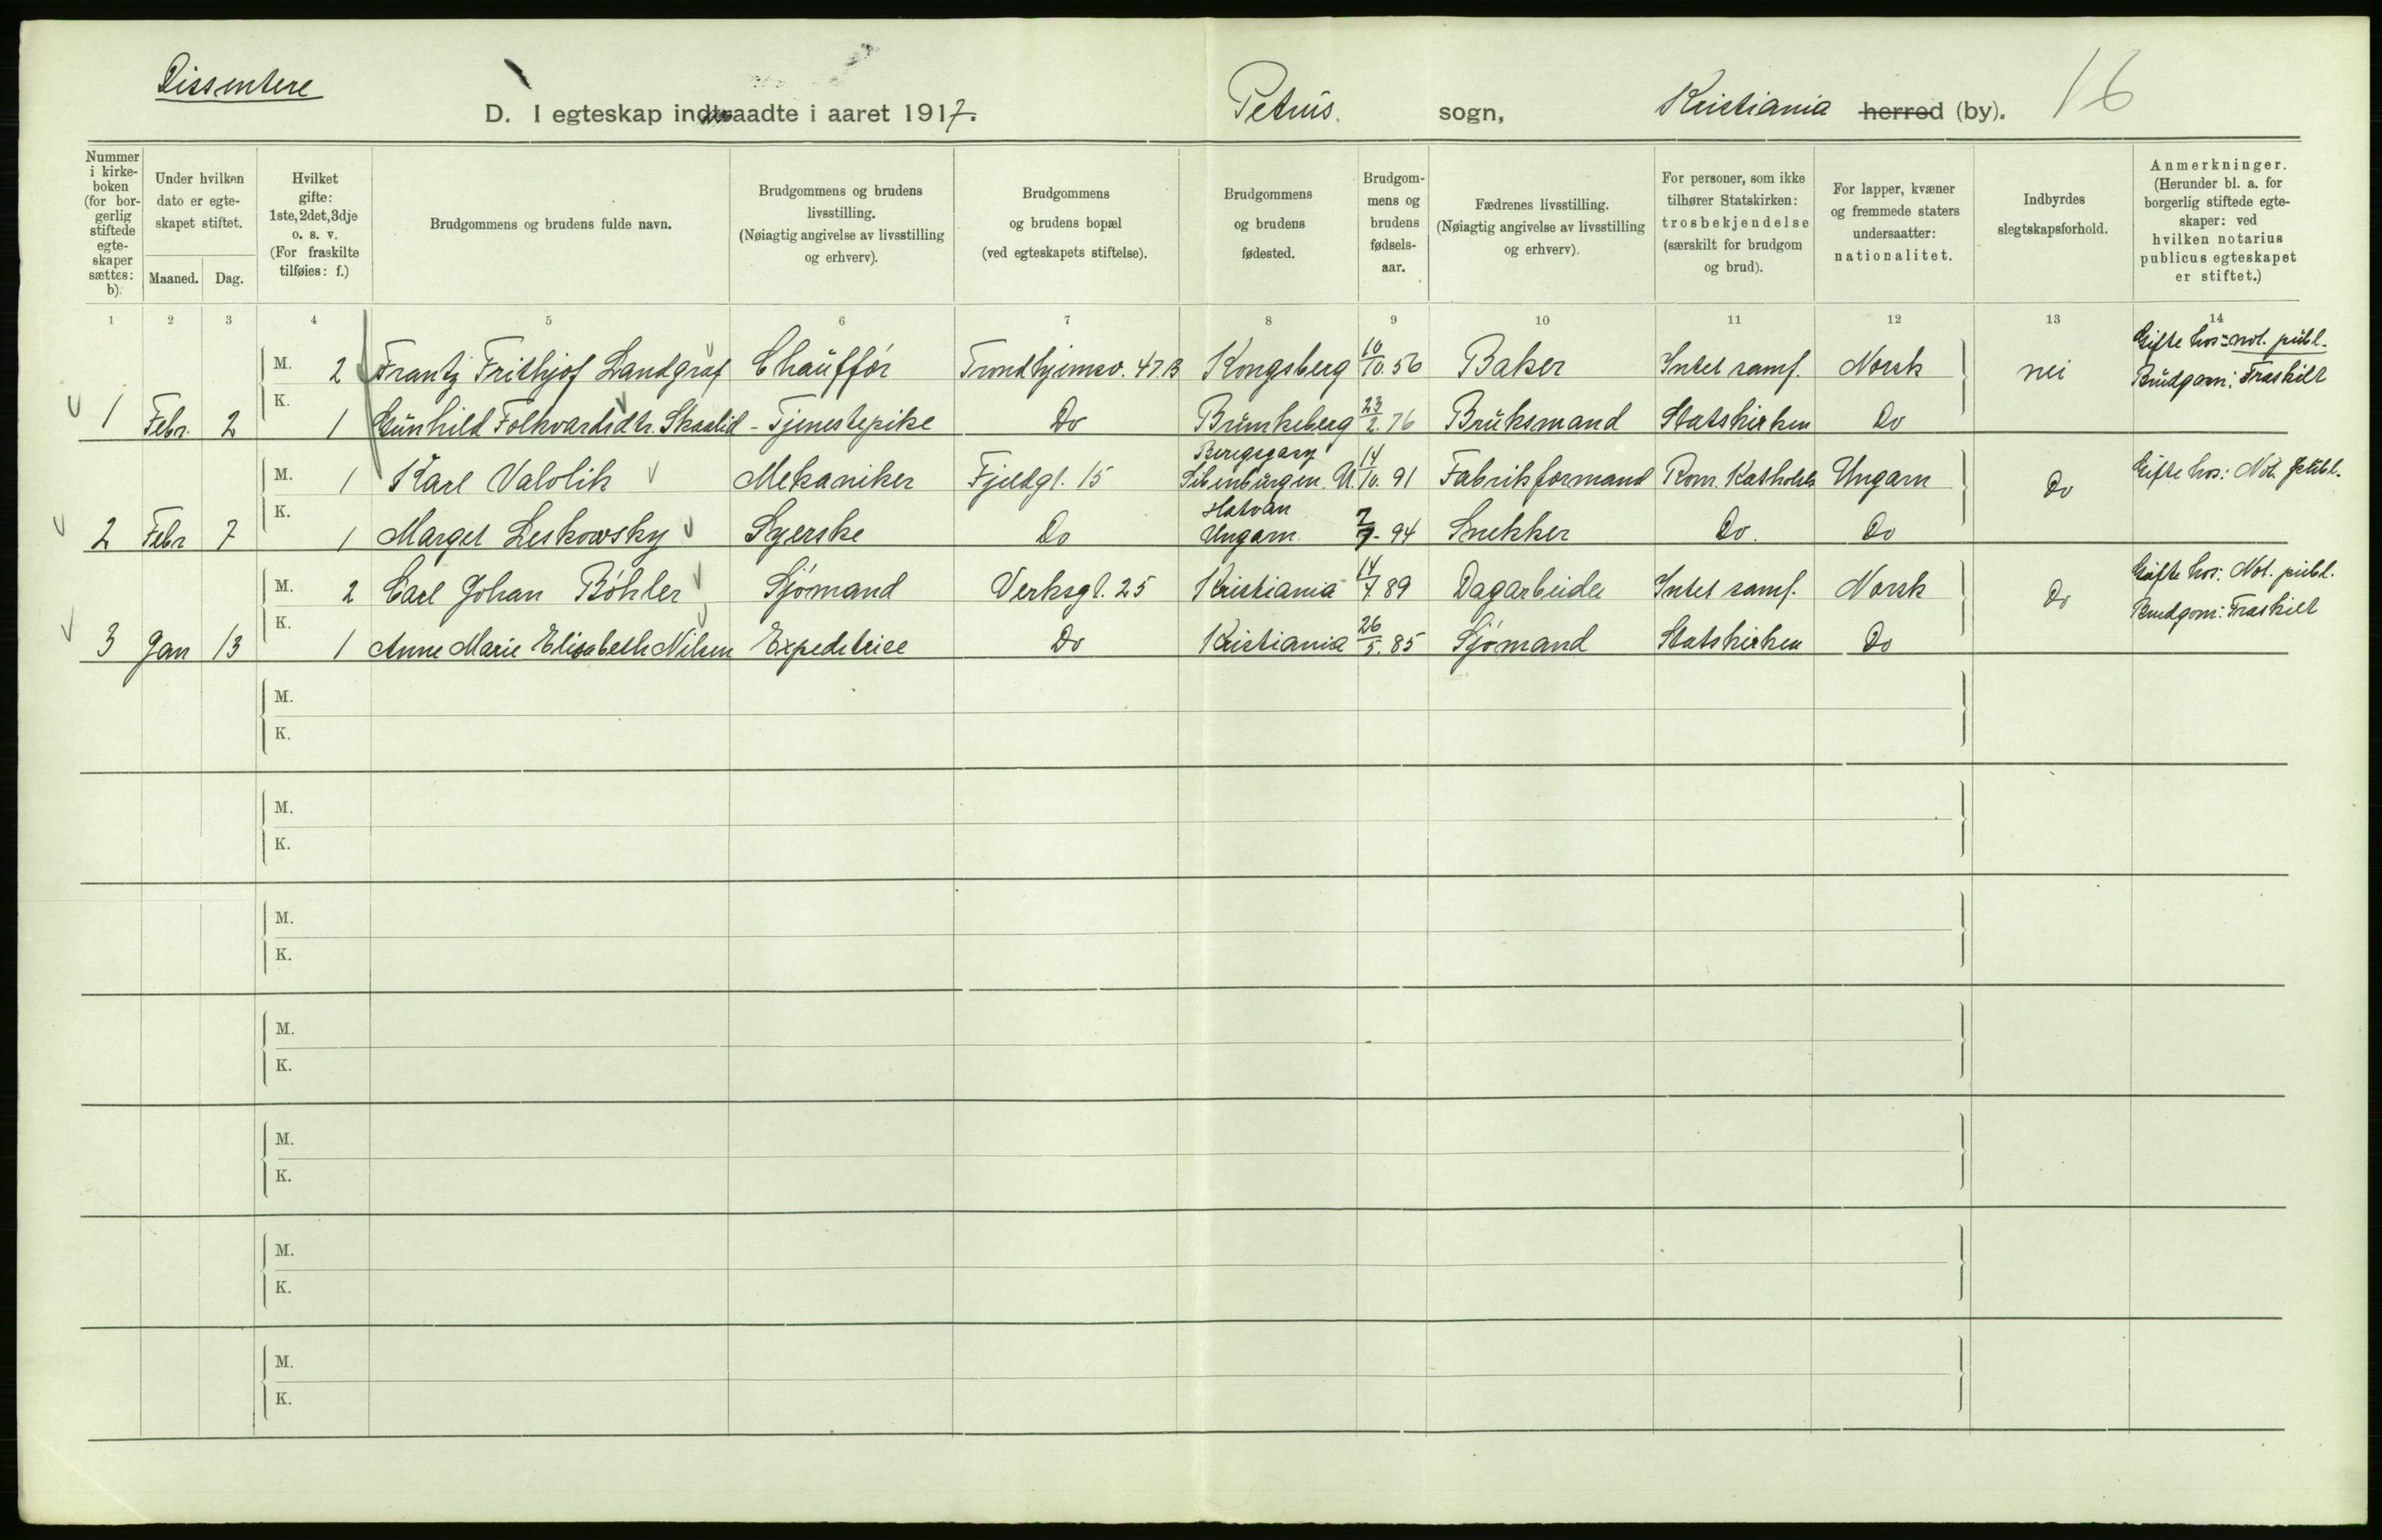 Dissentere
D. I egteskap indtraadte i aaret 1917. Petrus. sogn, Kristiania herred (by). 16
Nummer i kirkeboken (for borgerlig stiftede egteskaper sættes: b).
Under hvilken dato er egteskapet stiftet.
Maaned. Dag.
Hvilket gifte: 1ste, 2det, 3dje o. s. v. (For fraskilte tilføies: f.)
Brudgommens og brudens fulde navn.
Brudgommens og brudens livsstilling. (Nøiagtig angivelse av livsstilling og erhverv).
Brudgommens og brudens bopæl (ved egteskapets stiftelse).
Brudgommens og brudens fødested.
Brudgommens og brudens fødselsaar.
Fædrenes livsstilling. (Nøiagtig angivelse av livsstilling og erhverv).
For personer, som ikke tilhører Statskirken: trosbekjendelse (særskilt for brudgom og brud).
For lapper, kvæner og fremmede staters undersaatter: nationalitet.
Indbyrdes slegtskapsforhold.
Anmerkninger. (Herunder bl. a. for borgerlig stiftede egteskaper: ved hvilken notarius publicus egteskapet er stiftet.)
1 2 3 4 5 6 7 8 9 10 11 12 13 14
M. 2 Frantz Frithjof Landgraf Chauffør Trondhjemsv. 47.B Kongsberg 10/10. 56 Baker Intet samf. Norsk nei Gifte hos: not. publ. Brudgom: Fraskilt
1 Febr. 2 K. 1 Gunhild Folkvardsdtr. Skaalid - Tjenestepike Do Brunkeberg 23/2. 76 Bruksmand Statskirken Do
M. 1 Karl Valolik Mekaniker Fjeldgt. 15 Beregsgasy Sibenbürgen. U. 14/10. 91 Fabrikformand Rom. Katholsk Ungarn Do Gifte hos: Not. publ.
2 Febr 7 K. 1 Marget Leskowsky Syerske Do Hatvan Ungarn. 7/7- 94 Snekker Do. Do
M. 2 Carl Johan Bøhler Sjømand Verksgt. 25 Kristiania 14/7. 89 Dagarbeider Intet samf. Norsk Do Gifte hos: Not. publ. Brudgom: Fraskilt
3 Jan 13 K. 1 Anne Marie Elisabeth Nilsen Expeditrice Do Kristiania 26/5. 85 Sjømand Statskirken Do
M.
K.
M.
K.
M.
K.
M.
K.
M.
K.
M.
K.
M.
K.